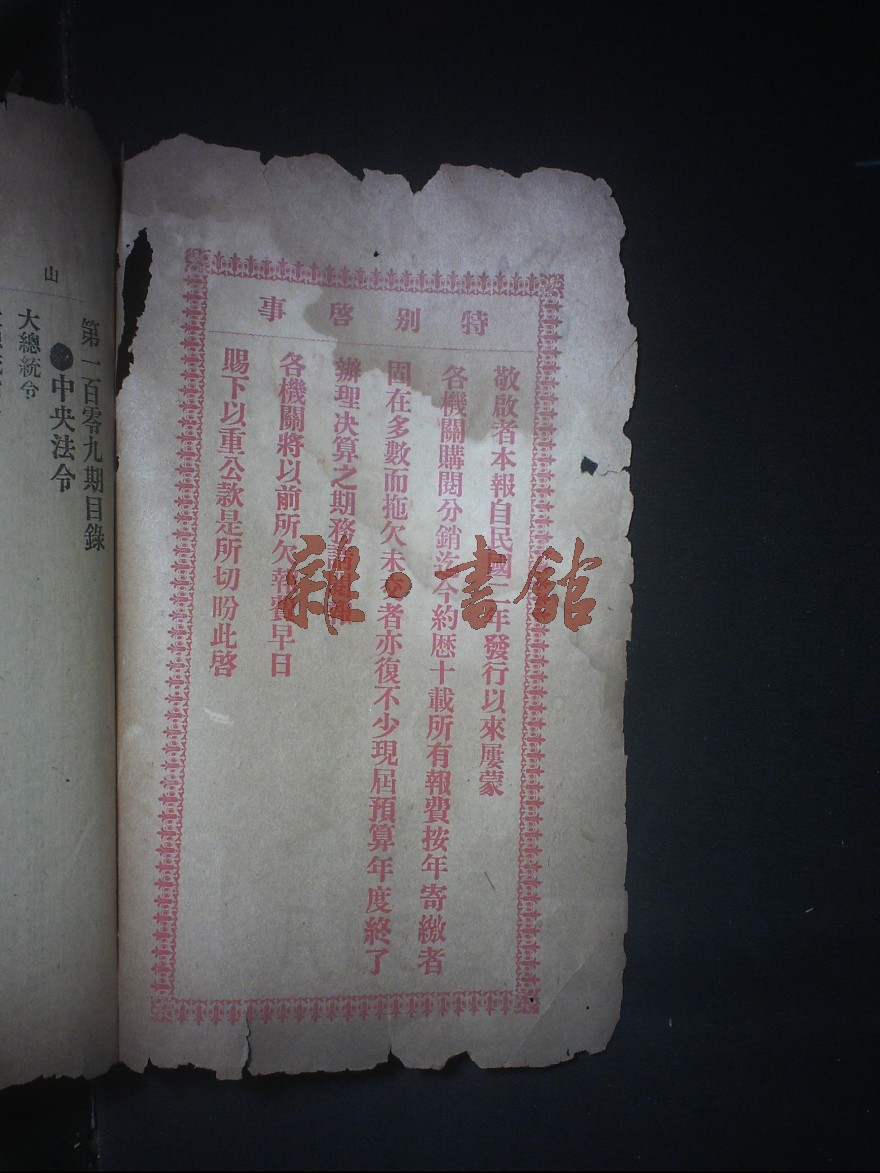 特別啓事
敬啟者本報自民國二年發行以來屢蒙
各機關購閱分銷迄今約歷十載所有報費按年寄繳者
固在多數而拖欠未交者亦復不少現屆預算年度終了
辦理決算之期務請
各機關將以前所欠報費早日
賜下以重公款是所切盼此啓
雜·書館
山
第一百零九期目錄
●中央法令
大總統令